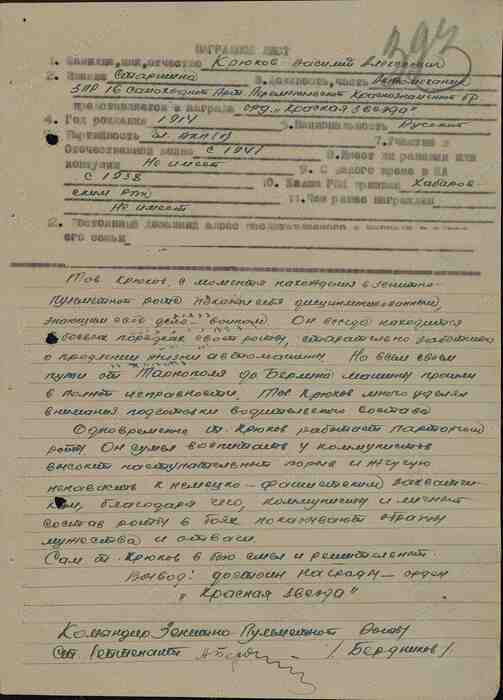 393
НАГРАДНОЙ ЛИСТ
1. Фамилия, имя, отчество Крюков Василий Алексеевич
2. Звание Старшина 3. Должность, часть Автомеханик
ЗПР 16 Самоходной Арт. Тернопольской Краснознаменной бр.
представляется к награде орд. "Красная Звезда"
4. Год рождения 1914 5. Национальность Русский
Партийность чл. ВКП(б) 7. Участие в
Отечественной войне с 1941 8. Имеет ли ранения или
контузии Не имеет 9. С какого время в КА
с 1938 10. Каким РВК призван Хабаров-
ским РВК 11. Чем ранее награжден
Не имеет
2. Постоянный домашний адрес
его семьи
Тов Крюков, с момента нахождения в зенитно-
пулеметной роте показал себя дисциплинированным,
знающим своё дело воином. Он всегда находится
в боевых порядках своей роты, старательно заботится
о продлении жизни автомашины. На всем своем
пути от Тарнополя до Берлина машины прошли
в полной исправности. Тов Крюков много уделял
внимания подготовки водительского состава
Одновременно т. Крюков работает парторгом
роты. Он сумел воспитать у коммунистов
высокий наступательный порыв и жгучую
ненависть к немецко-фашистским захватчи-
кам, благодаря чего, коммунисты и личный
состав роты в боях показывают образцы
мужества и отваги.
Сам т. Крюков в бою смел и решителен.
Вывод: достоин награды — орден
"Красная Звезда"
Командир Зенитно-Пулеметной Роты
Ст. Лейтенант /Бердников/